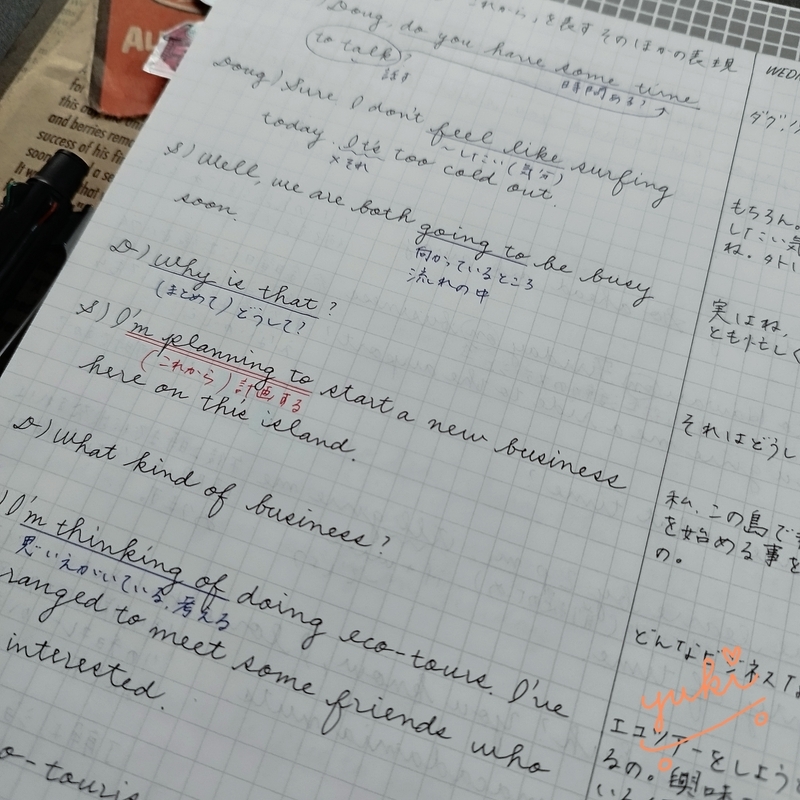 これから,を表すそのほかの表現
Doug, do you have some time
to talk?
話す
時間ある?
Doug) Sure I don't feel like surfing
～したい(気分)
today. It's too cold out.
×それ
S) Well, we are both going to be busy
向かっているところ
流れの中
soon.
D) Why is that?
(まとめて)どうして?
S) I'm planning to start a new business
(これから)計画する
here on this island.
D) What kind of business?
) I'm thinking of doing eco-tours. I've
思いえがいている、考える
ranged to meet some friends who
interested.
o-touris
WED
ダグ
もちろん。
したい気
ね。外
実はね、
とも忙し
それはどうし
私、この島で
を始める事を
の。
どんな
ネス
エコツアーをしよう
るの。興味
いる
yuki
Au
for
this
and berries rem
success of his fir
soon